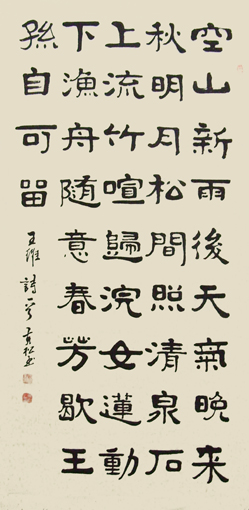 空山新雨後天氣晚来
秋明月松間照清泉石
上流竹喧歸浣女蓮動
下漁舟随意春芳歇王
孫自可留
王維詩一首